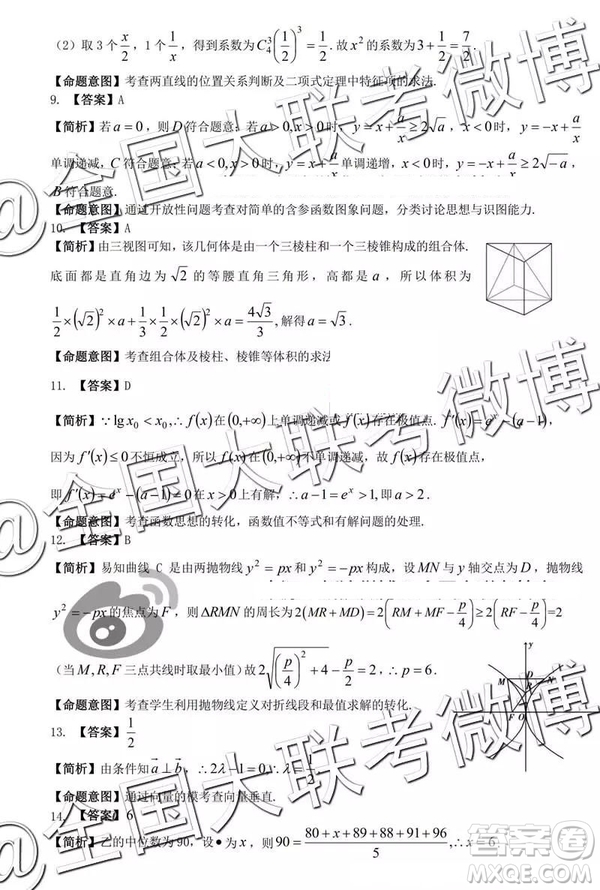 (2) 取 3 个 x/2，1 个 1/x，得到系数为 C₄³(1/2)³=1/2. 故 x² 的系数为 3+1/2=7/2.
【命题意图】考查两直线的位置关系判断及二项式定理中特征项的求法.
9. 【答案】A
【简析】若 a=0，则 D 符合题意. 若 a>0, x>0 时，y=x+a/x≥2√a，x<0 时，y=-x+a/x
单调递减，C 符合题意. 若 a<0, x>0 时，y=x+a/x 单调递增，x<0 时，y=-x+a/x≥2√-a，
B 符合题意.
【命题意图】通过开放性问题考查对简单的含参函数图象问题，分类讨论思想与识图能力.
10. 【答案】A
【简析】由三视图可知，该几何体是由一个三棱柱和一个三棱锥构成的组合体.
底面都是直角边为 √2 的等腰直角三角形，高都是 a，所以体积为
1/2×(√2)²×a+1/3×1/2×(√2)²×a=4√3/3，解得 a=√3.
【命题意图】考查组合体及棱柱、棱锥等体积的求法
11. 【答案】D
【简析】∵lg x₀<x₀,∴f(x)在(0,+∞)上单调递减或f(x)存在极值点. f′(x)=eˣ-(a-1),
因为 f′(x)≤0 不恒成立，所以 f(x) 在 (0,+∞) 不单调递减，故 f(x) 存在极值点，
即 f′(x)=eˣ-(a-1)=0 在 (0,+∞) 上有解，∴a-1=eˣ>1,即 a>2.
【命题意图】考查函数思想的转化，函数值不等式和有解问题的处理.
12. 【答案】B
【简析】易知曲线 C 是由两抛物线 y²=px 和 y²=-px 构成，设 MN 与 y 轴交点为 D，抛物线
y²=-px 的焦点为 F，则 ΔRMN 的周长为 2(MR+MD)=2(RM+MF-p/4)≥2(RF-p/4)=2
(当 M,R,F 三点共线时取最小值) 故 2√((p/4)²+4)-p/2=2,∴p=6.
y
M D N
R
F O x
【命题意图】考查学生利用抛物线定义对折线段和最值求解的转化.
13. 【答案】1/2
【简析】由条件知 a⃗⊥b⃗，∴2λ-1=0,∴λ=1/2.
【命题意图】通过向量的模考查向量垂直.
14. 【答案】6
【简析】乙的中位数为 90，设●为 x，则 90=(80+x+89+88+91+96)/5,∴x=6
@全国大联考微博
@全国大联考微博
@全国大联考微博
答案卷